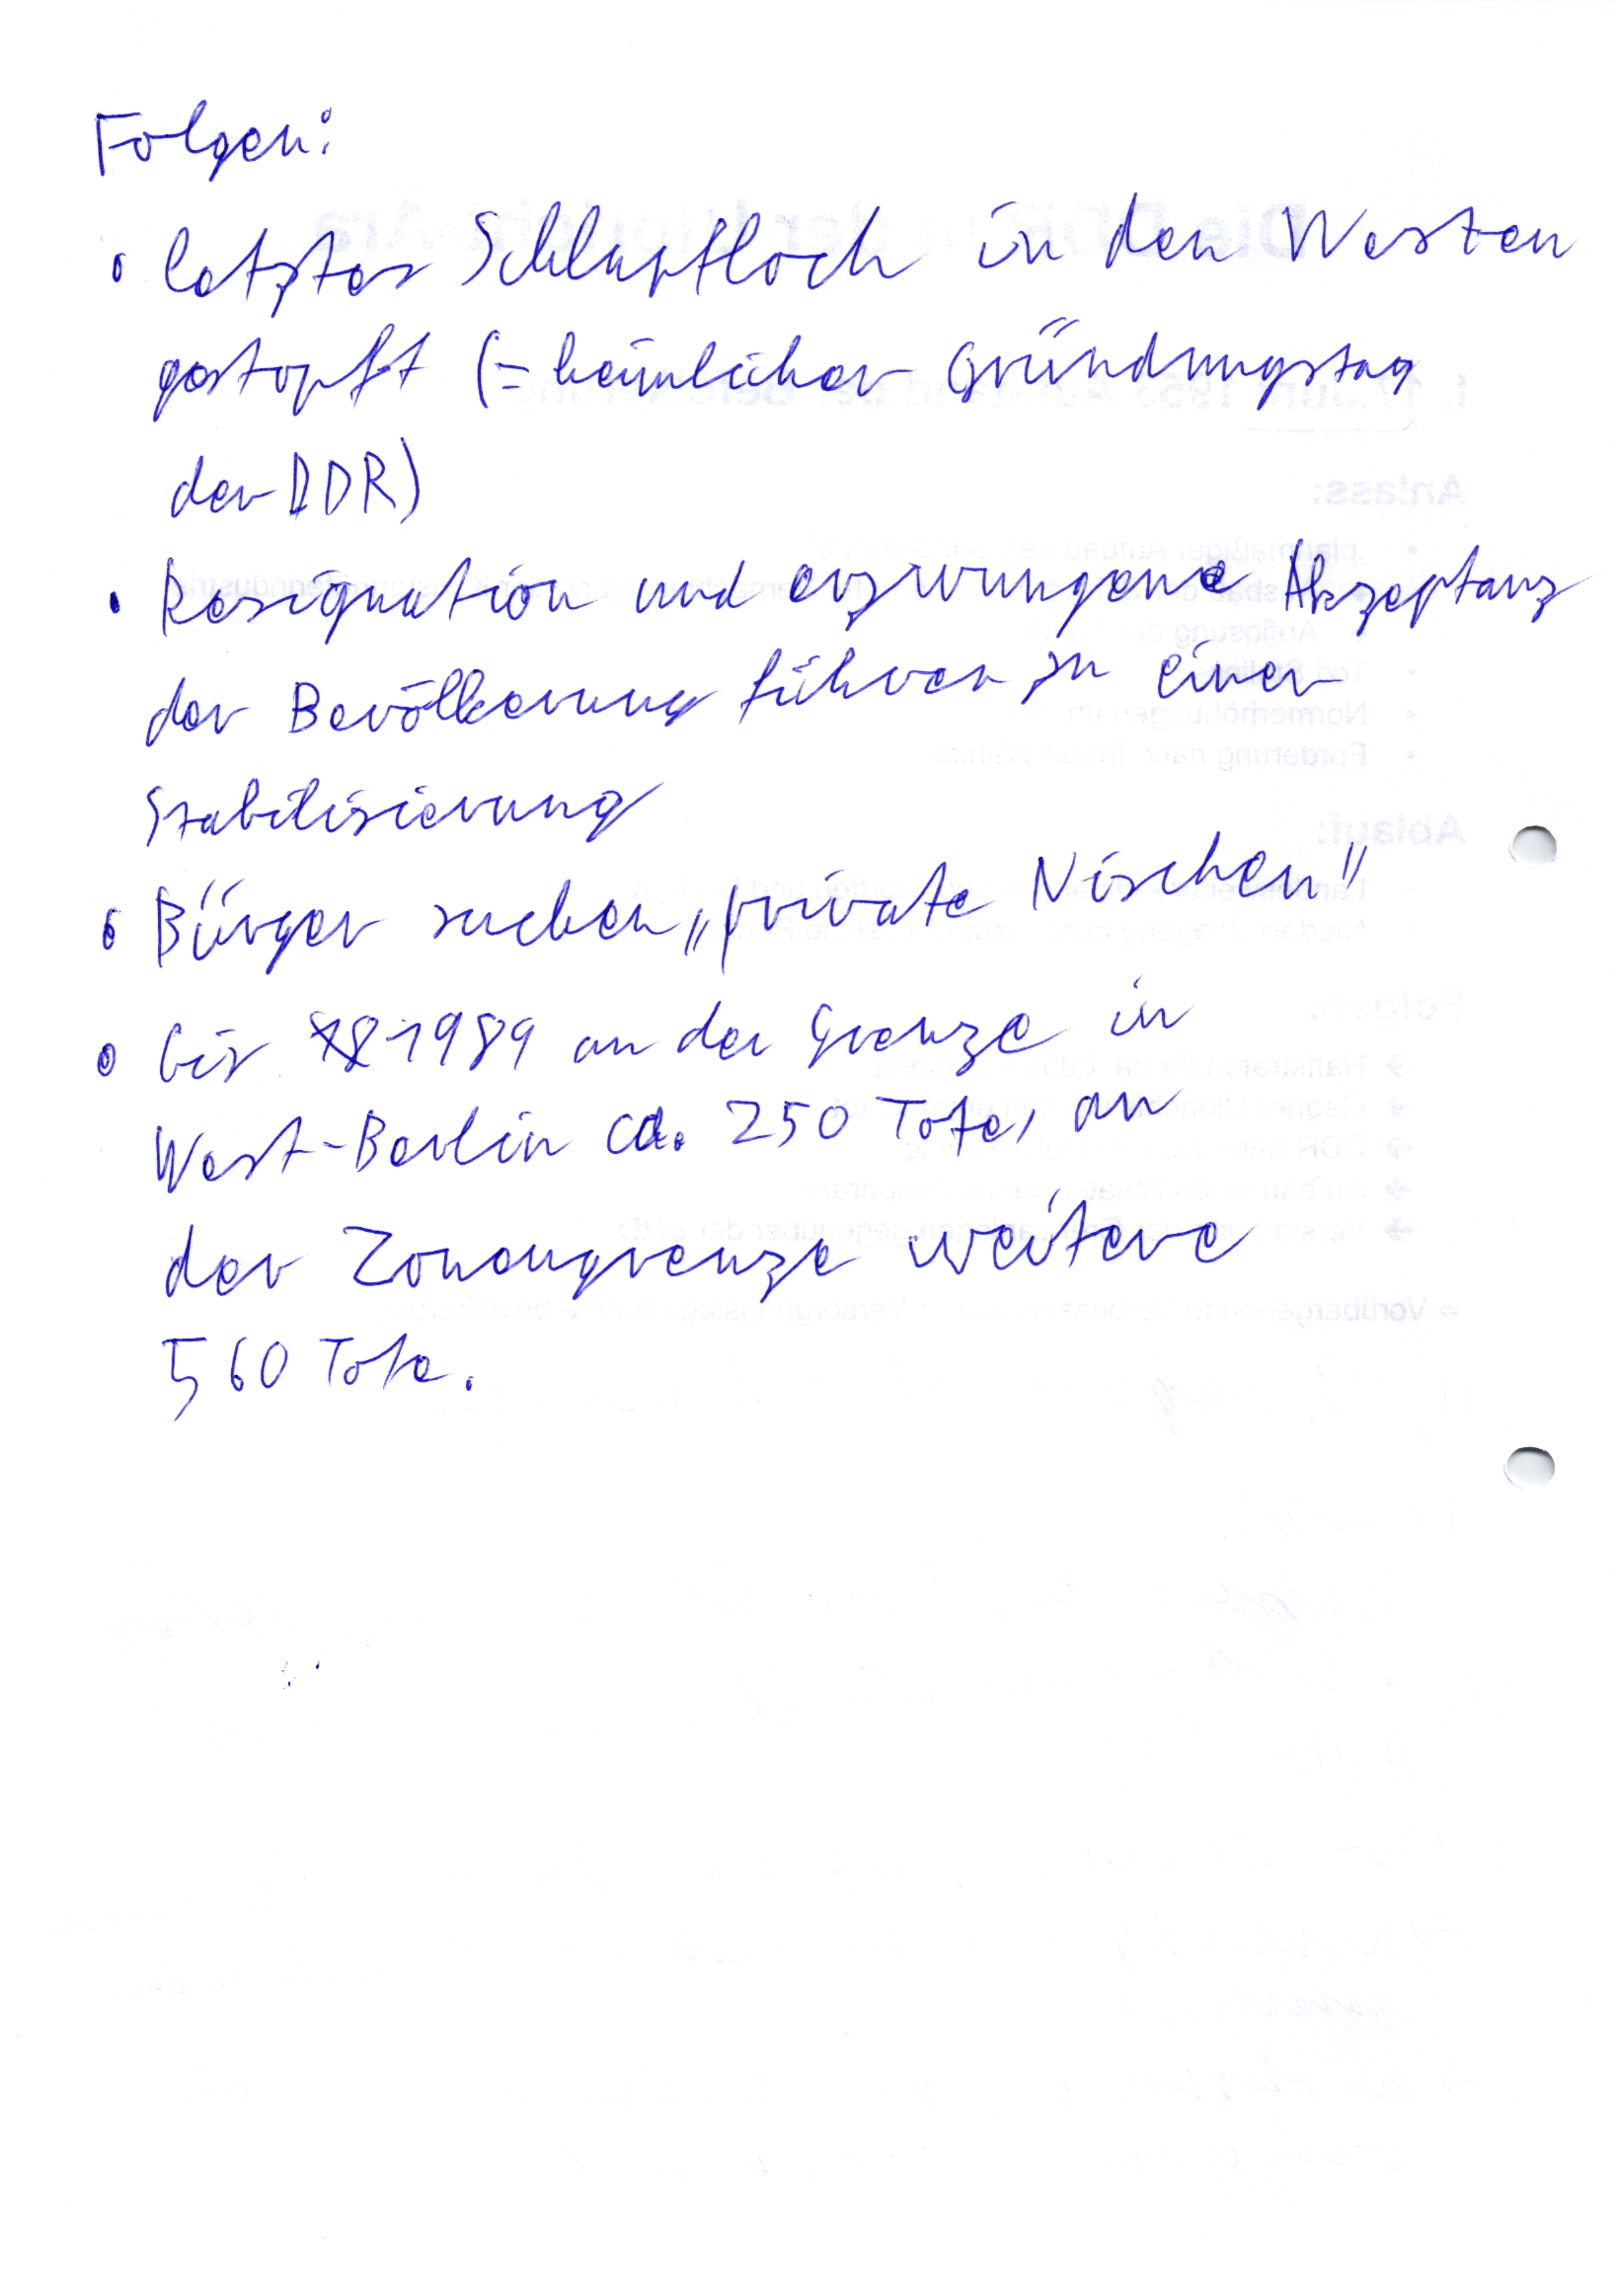 Folgen:
• letztes Schlupfloch in den Westen
gestopft (= heimlicher Gründungstag
der DDR)
• Resignation und erzwungene Akzeptanz
der Bevölkerung führen zu einer
Stabilisierung
• Bürger suchen „private Nischen"
• bis 1989 an der Grenze in
West-Berlin ca. 250 Tote, an
der Zonengrenze weitere
560 Tote.